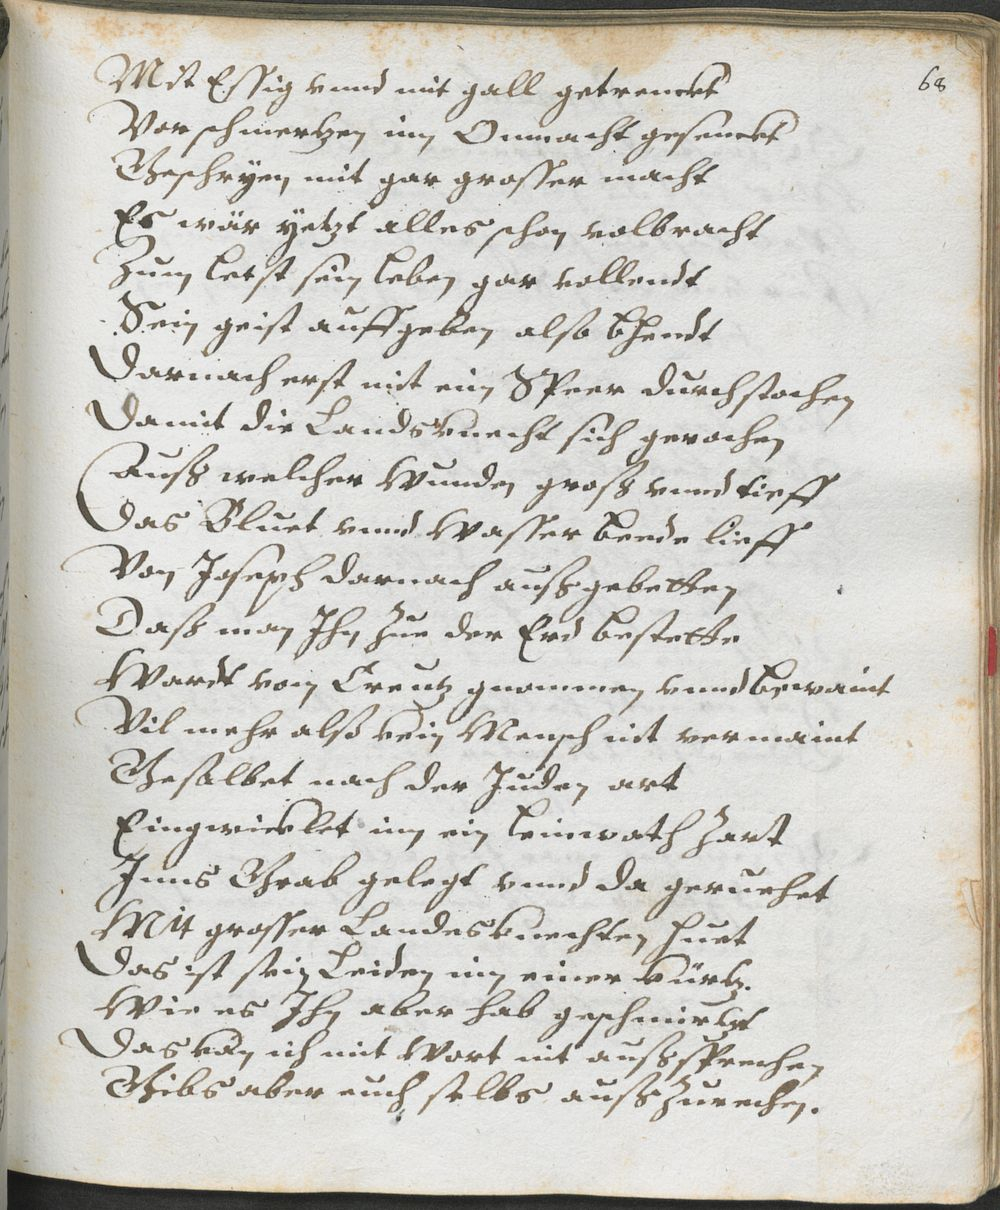 68
Mit Essig vnnd mit gall getrenckt
Vor schmertzen inn Onmacht gesenckt
Geschryen mit gar grosser macht
Es wär yetzt alles schon volbracht
Zum letst sein leben gar vollendt
Sein geist auffgeben also bhendt
Darnach erst mit eim Speer durchstochen
Damit die Landsknecht sich gerochen
Auß welcher Wunden groß vnnd tieff
Das Bluet vnnd Wasser beede lieff
Von Joseph darnach außgebetten
Daß man Ihn zue der Erd bestette
Wardt vom Creutz gnommen vnnd bewaint
Vil mehr alß kein Mensch nit vermaint
Gesalbet nach der Juden art
Eingwicklet inn ein leinwath zart
Inns Grab gelegt vnnd da geruehet
Mit grosser Landesknechten huet
Das ist sein Leiden inn einer kürtz.
Wie es Ihn aber hab geschmirtzt
Das kan ich mit Wort nit außsprechen
Gibs aber euch selbs außzurechen.